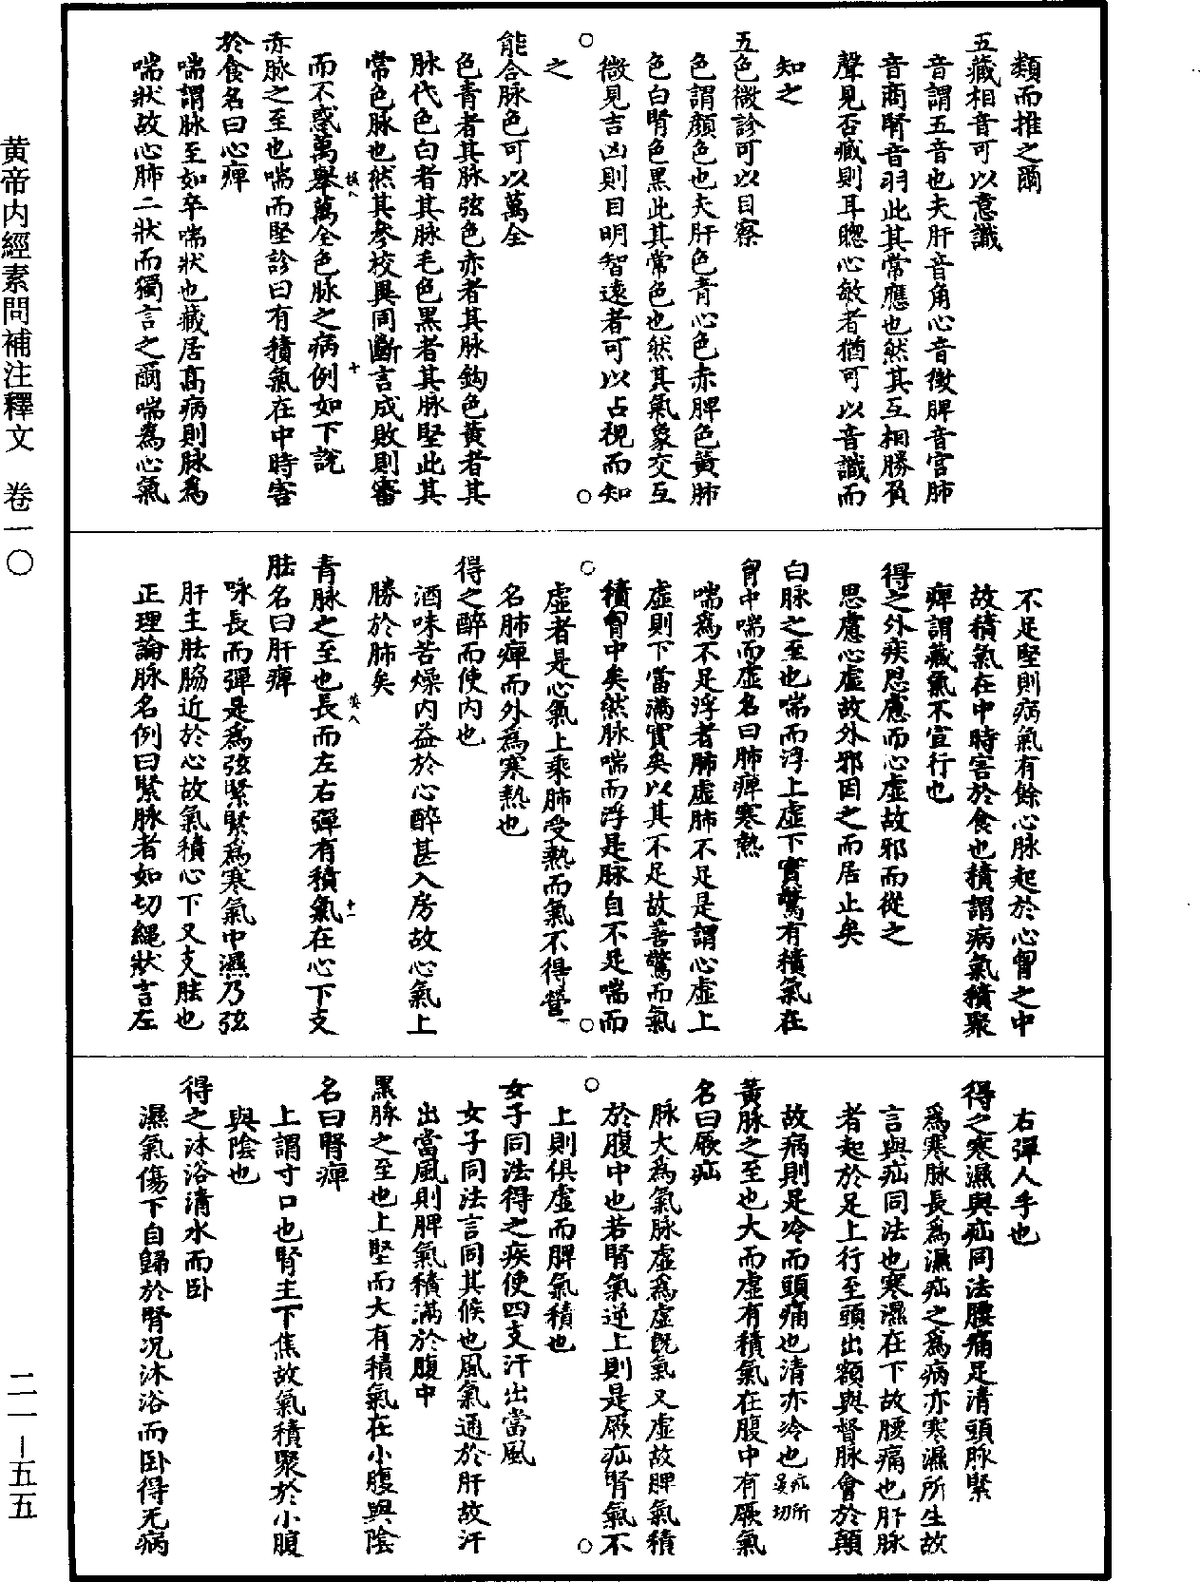 黃帝內經素問補注釋文　卷一〇
二一—五五
類而推之爾
五藏相音可以意識
音謂五音也夫肝音角心音徵脾音宮肺
音商腎音羽此其常應也然其互相勝負
聲見否臧則耳聦心敏者猶可以音識而
知之
五色微診可以目察
色謂顏色也夫肝色青心色赤脾色黃肺
色白腎色黑此其常色也然其氣象交互
微見吉凶則目明智遠者可以占視而知
之
能合脉色可以萬全
色青者其脉弦色赤者其脉鈎色黃者其
脉代色白者其脉毛色黑者其脉堅此其
常色脉也然其參校異同斷言成敗則審
而不惑萬舉萬全色脉之病例如下說
赤脉之至也喘而堅診曰有積氣在中時害
於食名曰心痺
喘謂脉至如卒喘狀也藏居高病則脉為
喘狀故心肺二狀而獨言之爾喘為心氣
不足堅則病氣有餘心脉起於心胷之中
故積氣在中時害於食也積謂病氣積聚
痺謂藏氣不宣行也
得之外疾思慮而心虛故邪而從之
思慮心虛故外邪因之而居止矣
白脉之至也喘而浮上虛下實驚有積氣在
胷中喘而虛名曰肺痺寒熱
喘為不足浮者肺虛肺不足是謂心虛上
虛則下當滿實矣以其不足故善驚而氣
積胷中矣然脉喘而浮是脉自不足喘而
虛者是心氣上乘肺受熱而氣不得營一
名肺痺而外為寒熱也
得之醉而使內也
酒味苦燥內益於心醉甚入房故心氣上
勝於肺矣
青脉之至也長而左右彈有積氣在心下支
胠名曰肝痺
咏長而彈是為弦緊緊為寒氣中濕乃弦
肝主胠脇近於心故氣積心下又支胠也
正理論脉名例曰緊脉者如切繩狀言左
右彈人手也
得之寒濕與疝同法腰痛足清頭脉緊
為寒脉長為濕疝之為病亦寒濕所生故
言與疝同法也寒濕在下故腰痛也肝脉
者起於足上行至頭出額與督脉會於顛
故病則足冷而頭痛也清亦冷也疝所晏切
黃脉之至也大而虛有積氣在腹中有厥氣
名曰厥疝
脉大為氣脉虛為虛既氣又虛故脾氣積
於腹中也若腎氣逆上則是厥疝腎氣不
上則俱虛而脾氣積也
女子同法得之疾使四支汗出當風
女子同法言同其候也風氣通於肝故汗
出當風則脾氣積滿於腹中
黑脉之至也上堅而大有積氣在小腹與陰
名曰腎痺
上謂寸口也腎主下焦故氣積聚於小腹
與陰也
得之沐浴清水而卧
濕氣傷下自歸於腎况沐浴而卧得无病